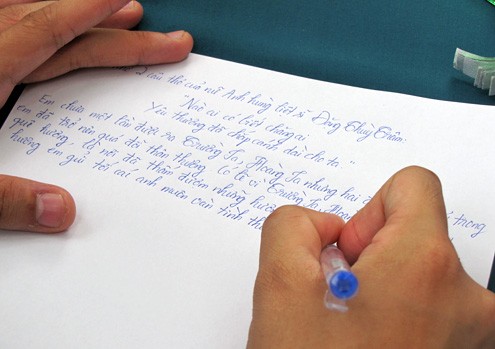 2 câu thơ của nữ Anh hùng liệt sĩ Đặng Thùy Trâm:
"Nào ai có biết chăng ai
Yêu thương đã chắp cánh dài cho ta"
Em chưa một lần được ra Trường Sa, Hoàng Sa nhưng hai
em đã trở nên quá đỗi thân thương. Có lẽ vì Trường Sa, trong
quê hương, ở nơi đó thấm đượm những hương
hương em gửi tới các anh muôn vàn tình th